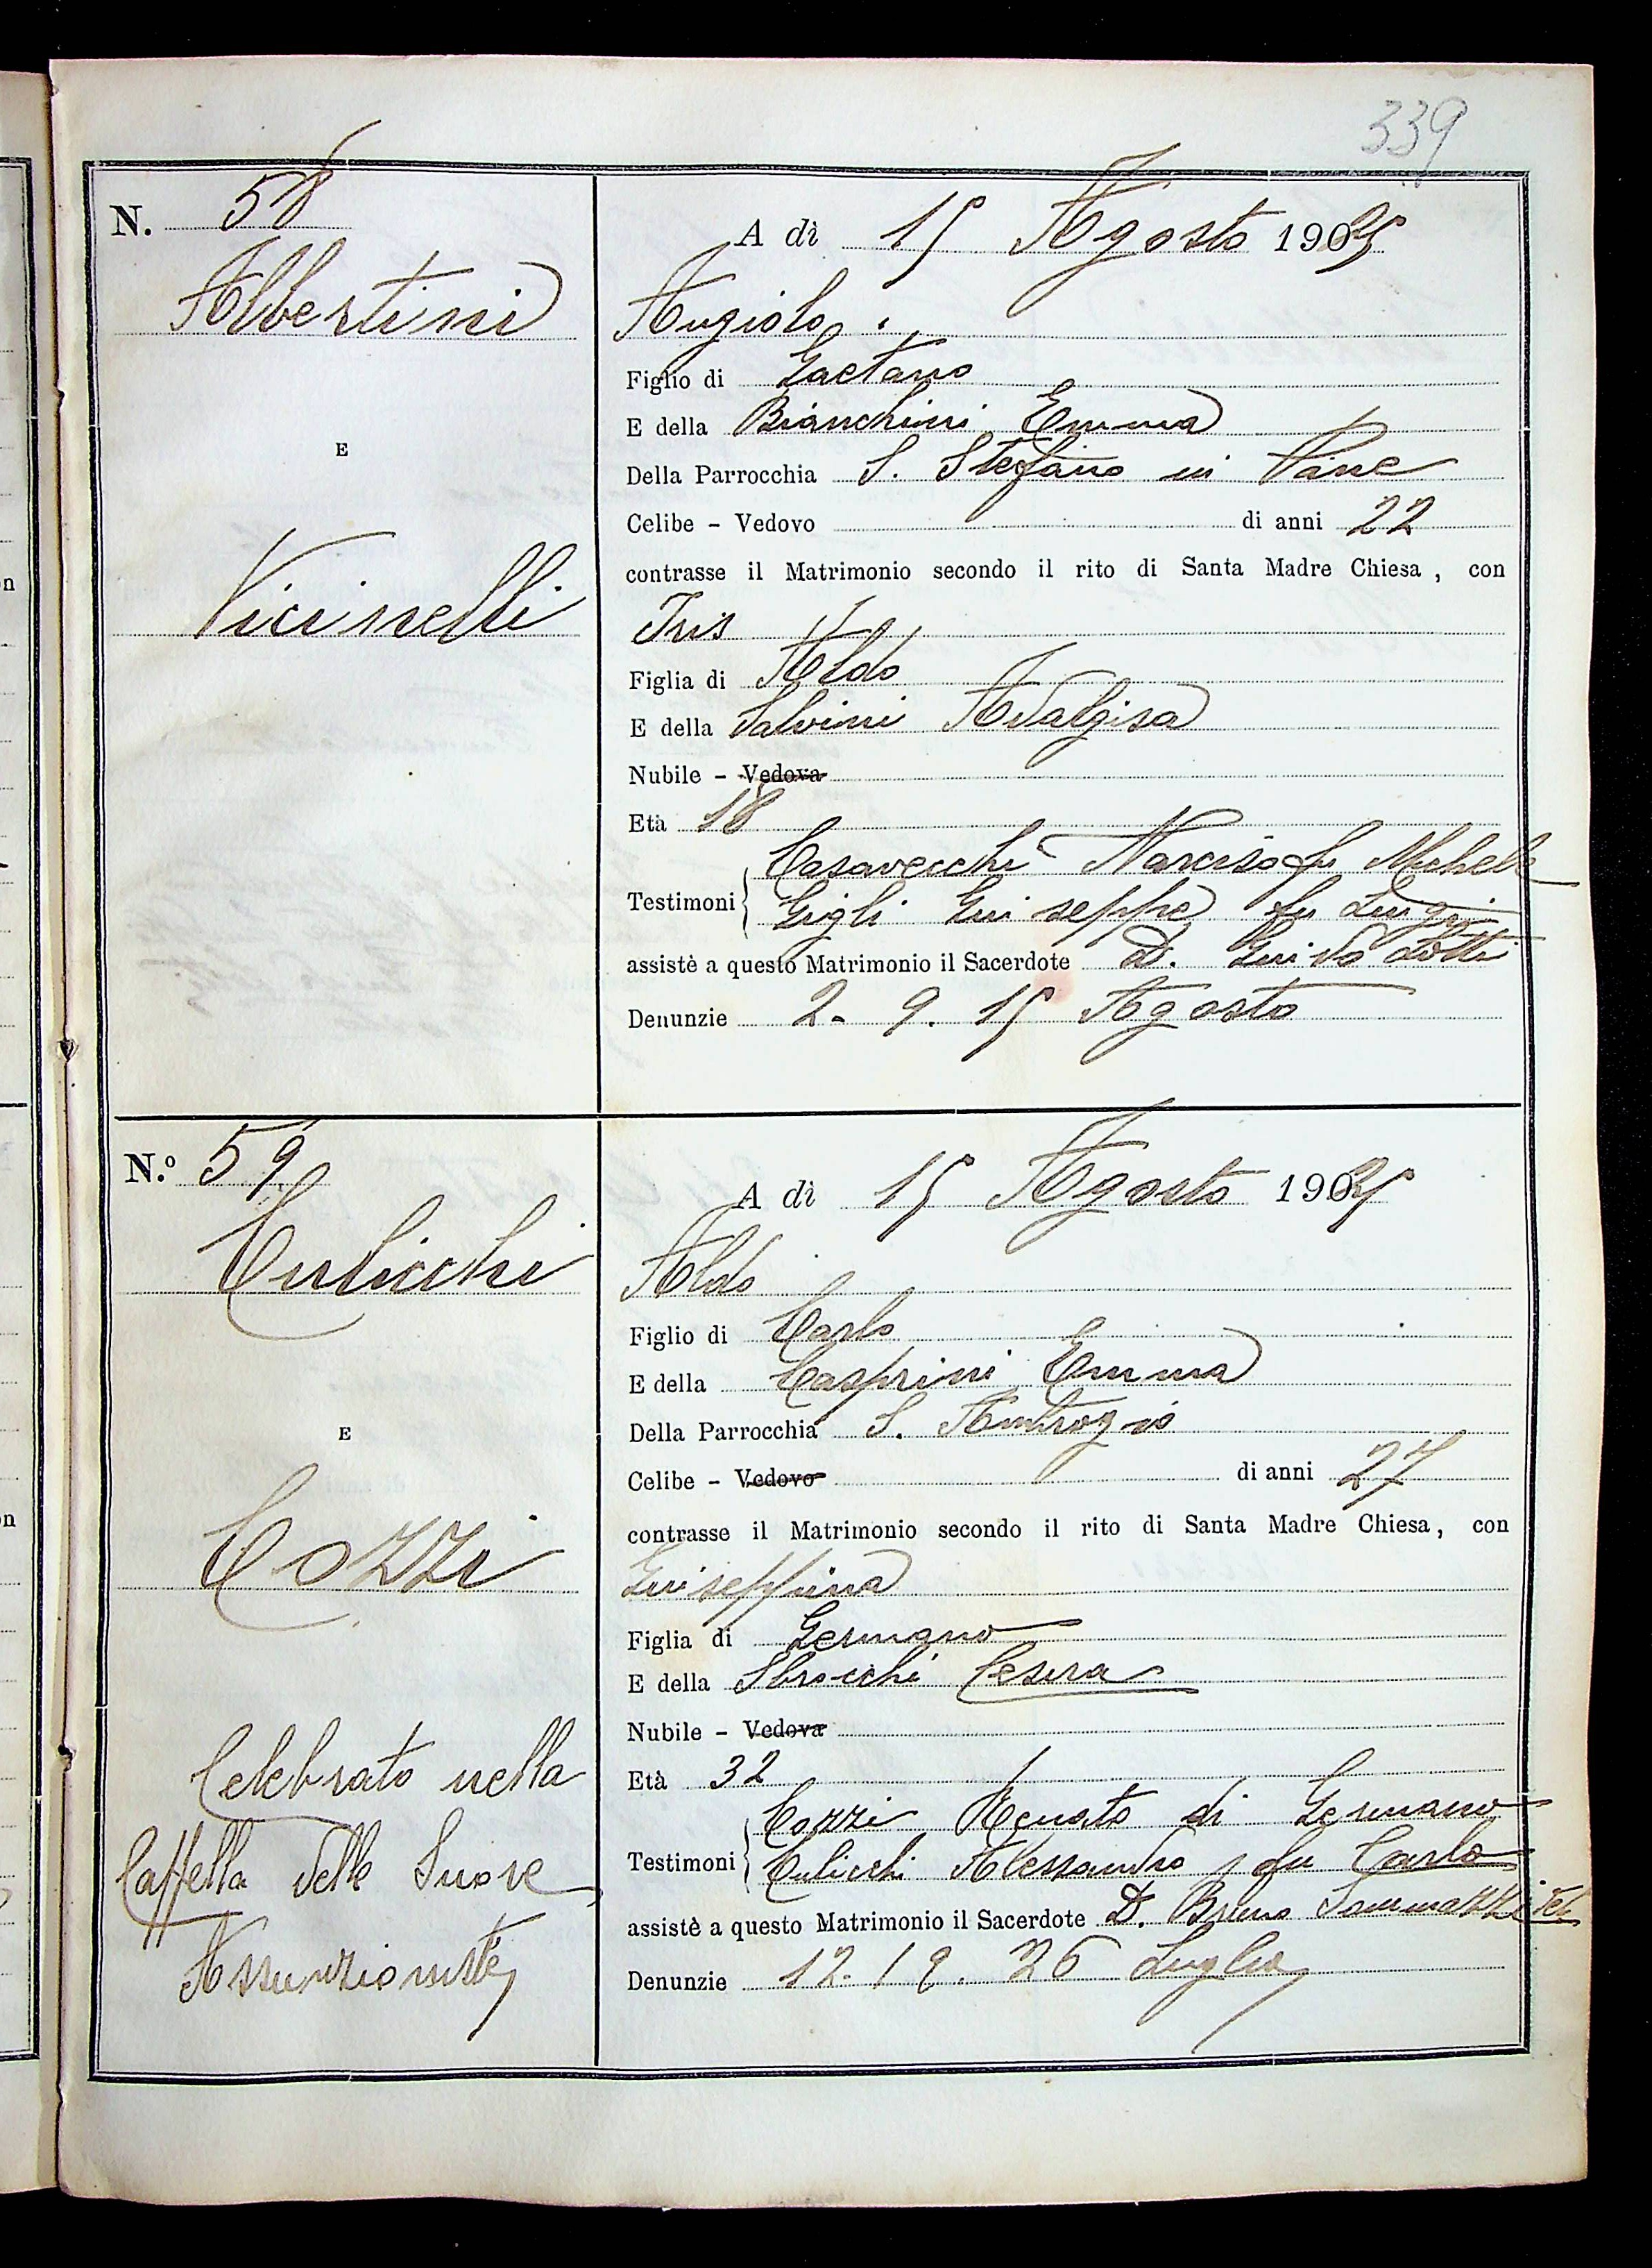 339
N. 58
A dì 15 Agosto 1925
Albertini
Angiolo
Figlio di Gaetano
E della Bianchini Emma
E
Della Parrocchia S. Stefano in Pane
Celibe – Vedovo di anni 22
contrasse il Matrimonio secondo il rito di Santa Madre Chiesa, con
Vicinelli
Iris
Figlia di Aldo
E della Salvini Adalgisa
Nubile – Vedova
Età 18
Casavecchi Narciso fu Michele
Testimoni
Gigli Giuseppe fu Luigi
assistè a questo Matrimonio il Sacerdote D. Guido Lotti
Denunzie 2. 9. 15 Agosto
N.º 59
A dì 15 Agosto 1925
Culicchi
Aldo
Figlio di Carlo
E della Casprini Emma
E
Della Parrocchia S. Ambrogio
Celibe – Vedovo di anni 27
contrasse il Matrimonio secondo il rito di Santa Madre Chiesa, con
Cozzi
Giuseppina
Figlia di Germano
E della Sbrocchi Cesira
Nubile – Vedova
Età 32
Celebrato nella
Cappella delle Suore
Assunzioniste
Cozzi Renato di Germano
Testimoni
Culicchi Alessandro fu Carlo
assistè a questo Matrimonio il Sacerdote D. Bruno Tommazzi
Denunzie 12. 19. 26 Luglio